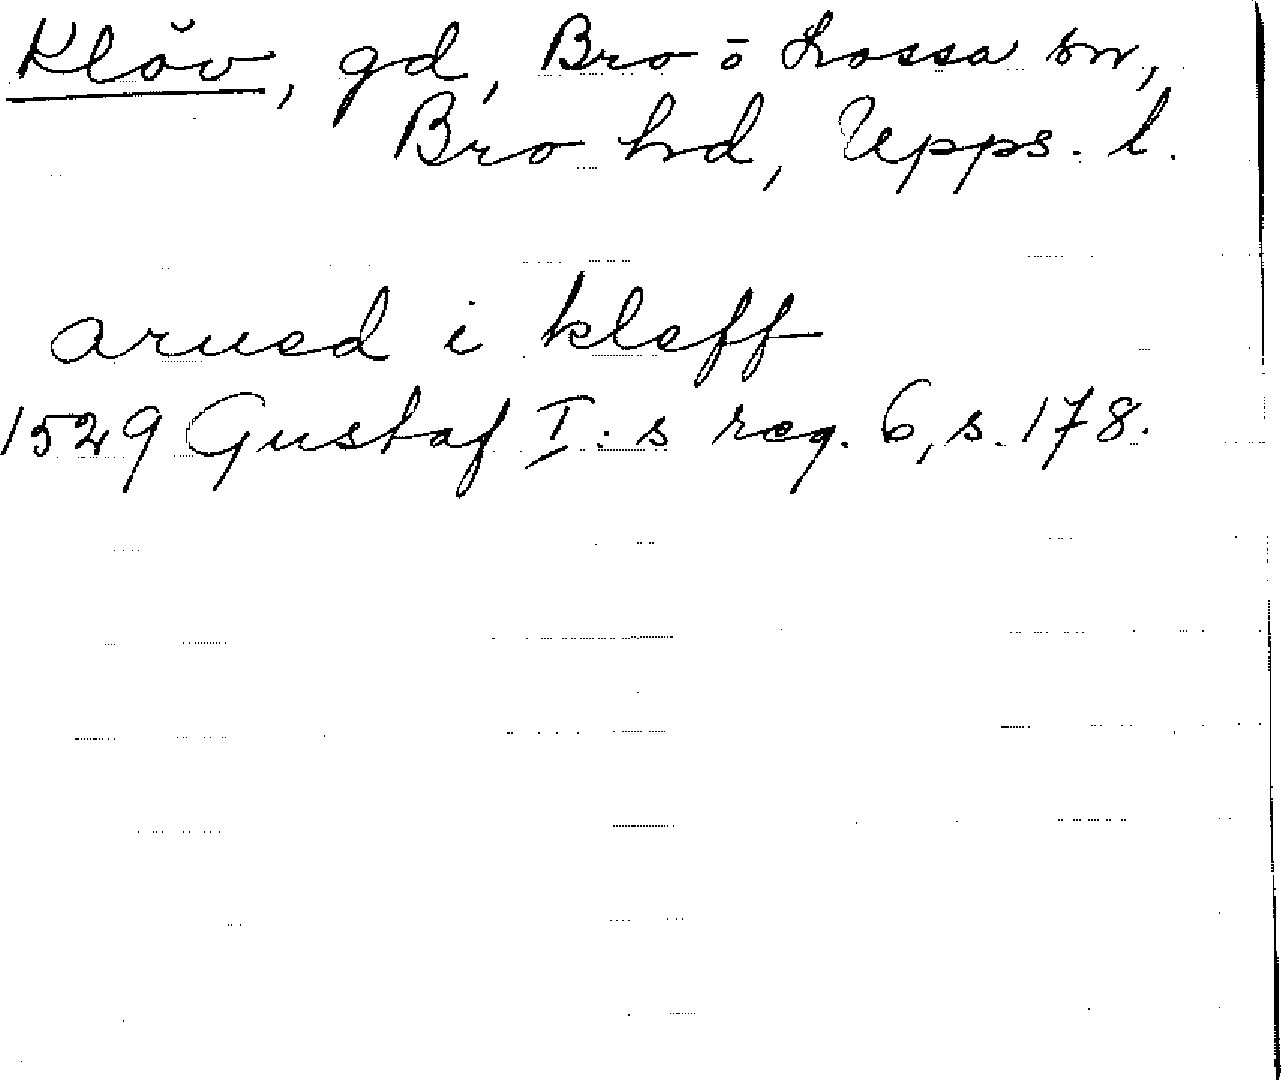 Klöv, gd, Bro o Lossa sn,
Bro hd, Upps. l.
arued i kleff
1529 Gustaf I:s reg. 6, s. 178.